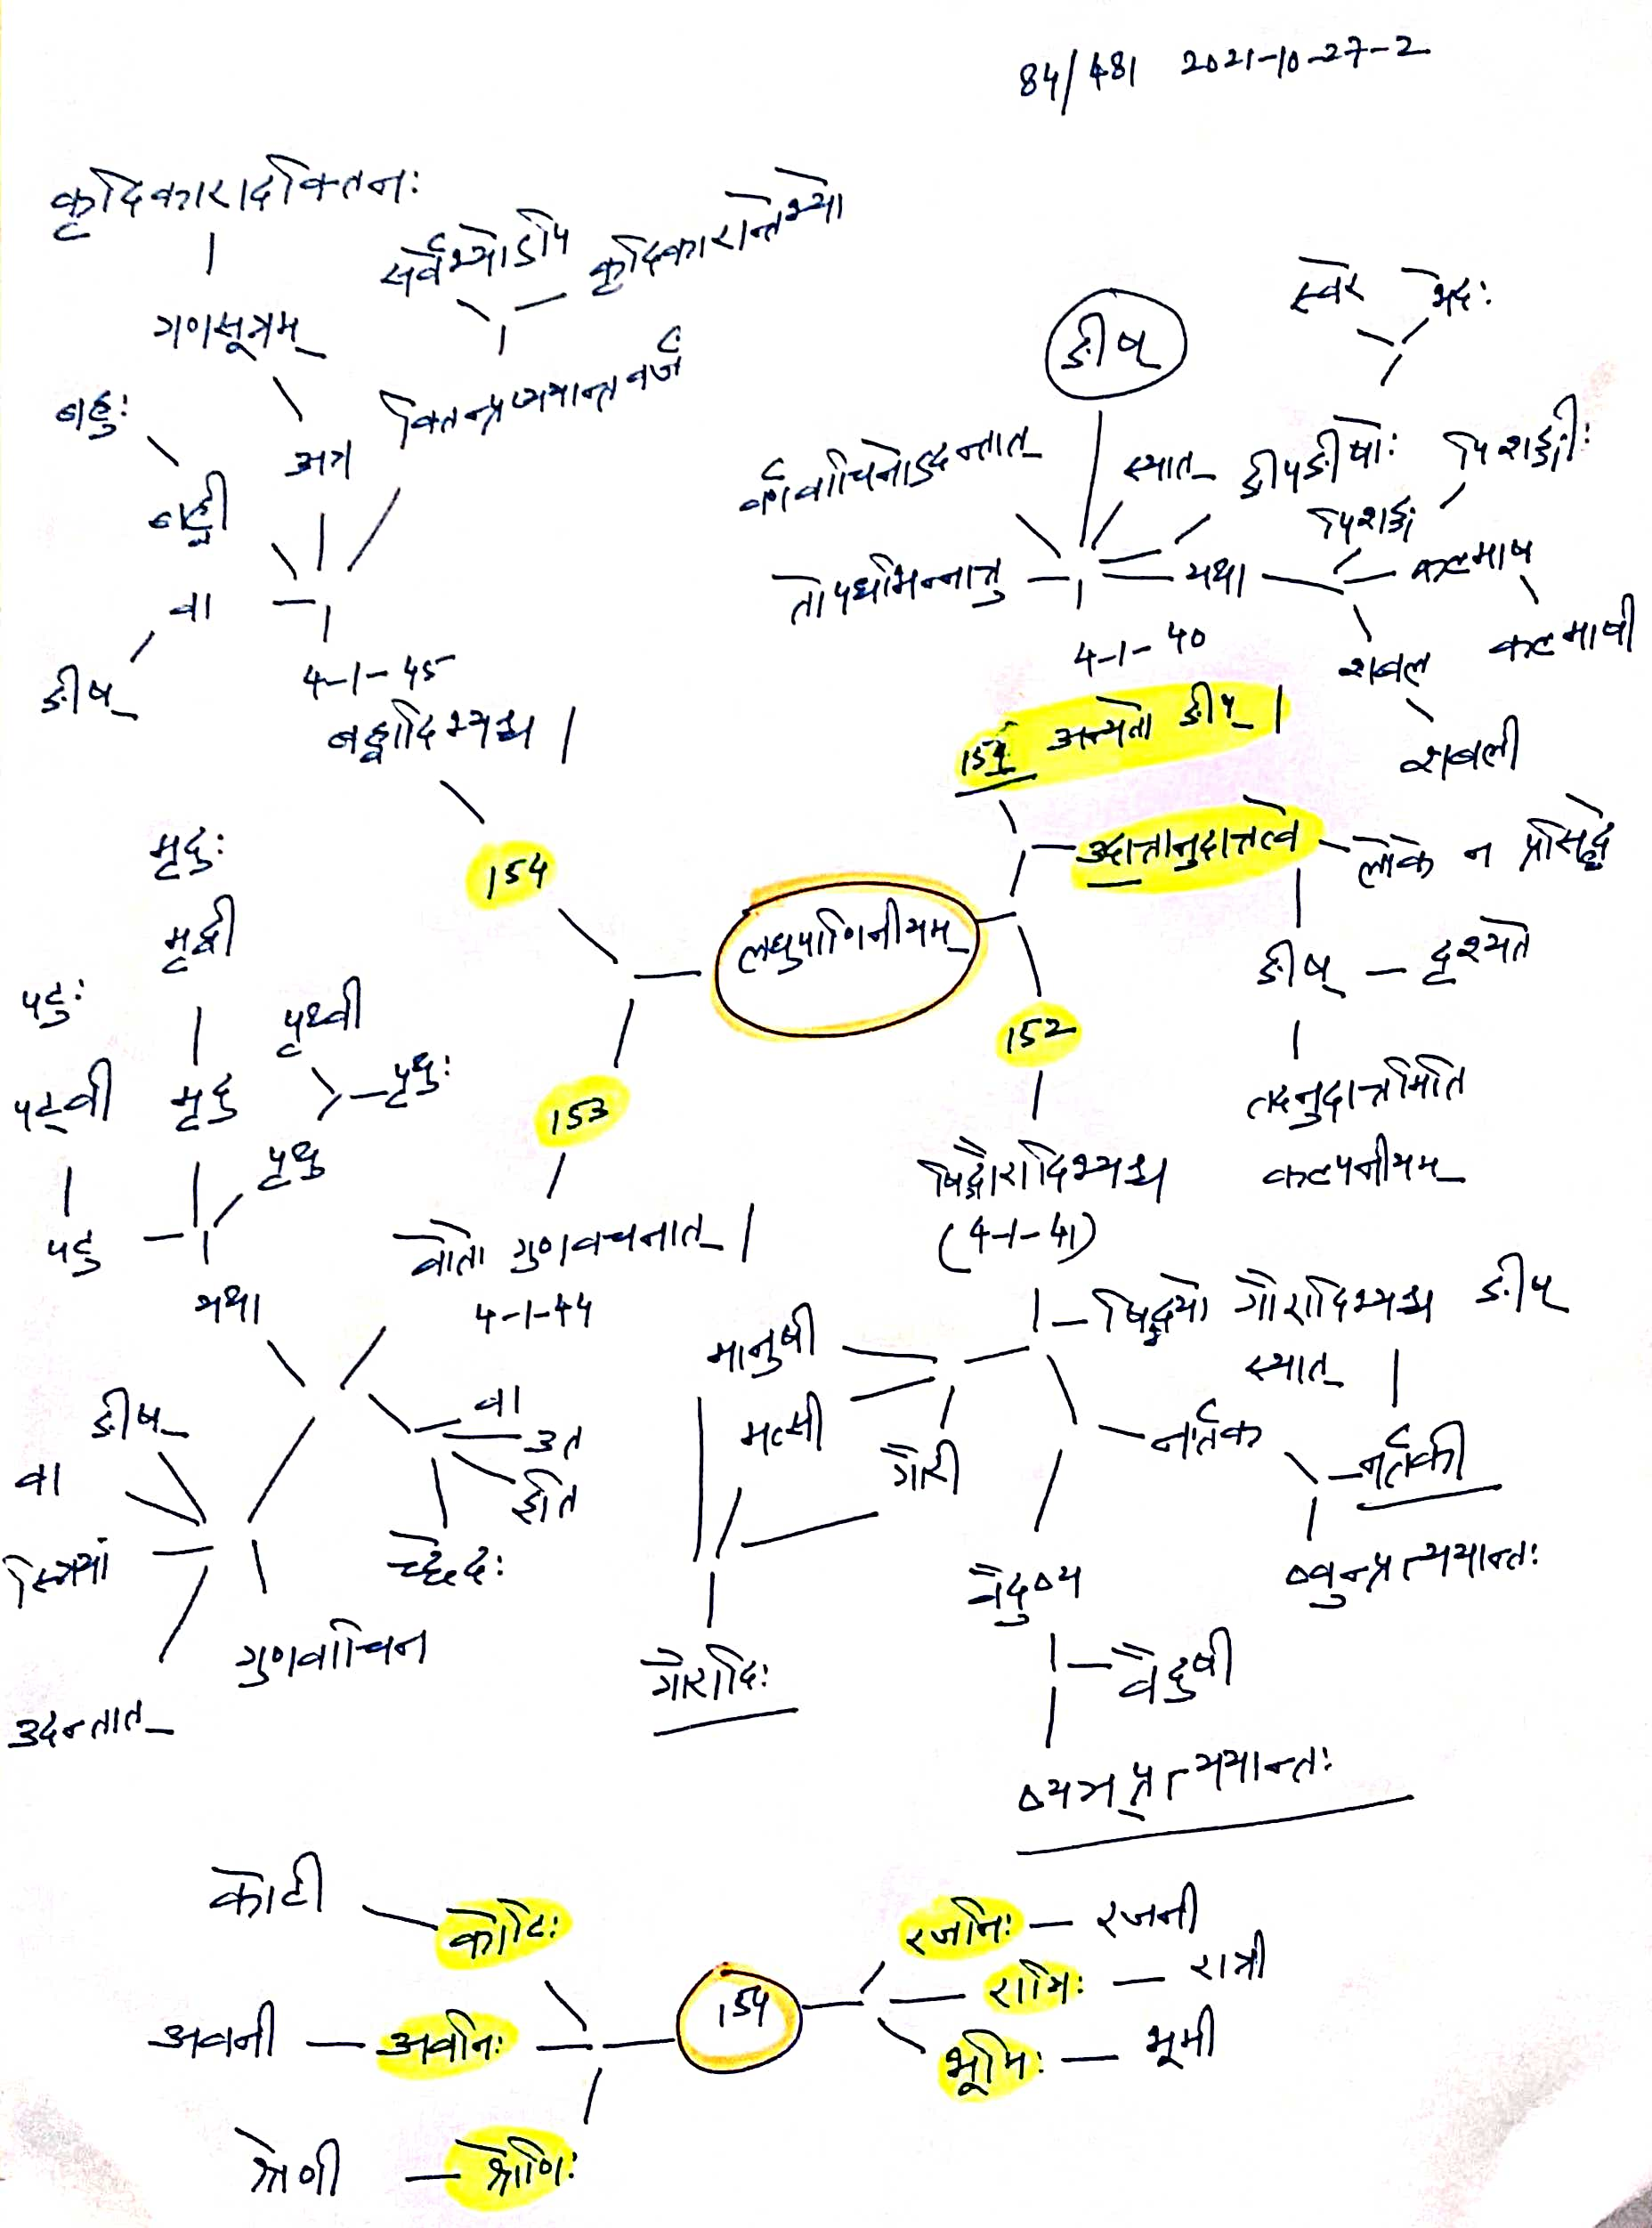 84/481 2021-10-27-2
कृदिकारादक्तिनः
गणसूत्रम्
सर्वेभ्योऽपि
कृदिकारान्तेभ्यो
क्तिन्प्रत्ययान्तवर्जं
अत्र
बहुः
बह्वी
वा
ङीष्
4-1-45
बह्वादिभ्यश्च |
154
ङीष्
स्वर
भेदः
वर्णवाचिनोऽदन्तात्
स्यात्
ङीप्ङीषोः
तोपधभिन्नात्तु
यथा
पिशङ्ग
पिशङ्गीः
कल्माष
कल्माषी
शबल
शबली
4-1-40
151 अन्यतो ङीष् |
उदात्तानुदात्तत्वे
लोके न प्रसिद्धे
ङीष् — दृश्यते
तदनुदात्तमिति
कल्पनीयम्
लघुपाणिनीयम्
152
षिद्गौरादिभ्यश्च
(4-1-41)
षिद्भ्यो गौरादिभ्यश्च ङीष्
स्यात्
मानुषी
मत्सी
गौरी
गौरादिः
नर्तक
नर्तकी
ष्वुन्प्रत्ययान्तः
वैदुष्य
वैदुषी
ष्यञप्रत्ययान्तः
153
वोतो गुणवचनात् |
4-1-44
मृदुः
मृद्वी
मृदु
पटुः
पट्वी
पटु
पृथ्वी
पृथुः
पृथु
यथा
वा
उत
इति
च्छेदः
ङीष्
वा
स्त्रियां
गुणवाचिन
उदन्तात्
154
कोटी
कोटिः
अवनी — अवनिः
श्रेणी — श्रेणिः
रजनिः — रजनी
रात्रिः — रात्री
भूमिः — भूमी